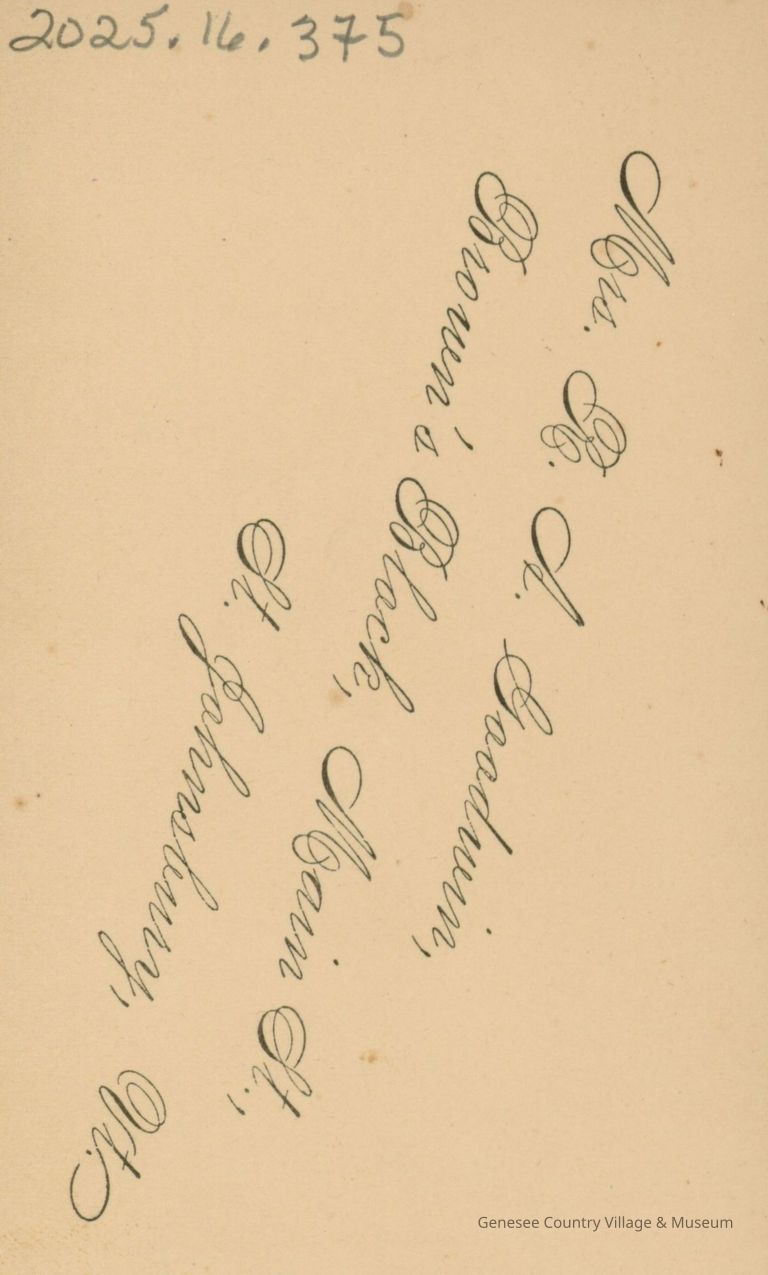 2025.16.375
Mrs. B. A. Goodwin,
Brown's Block, Main St.,
St. Johnsbury, Vt.
Genesee Country Village & Museum